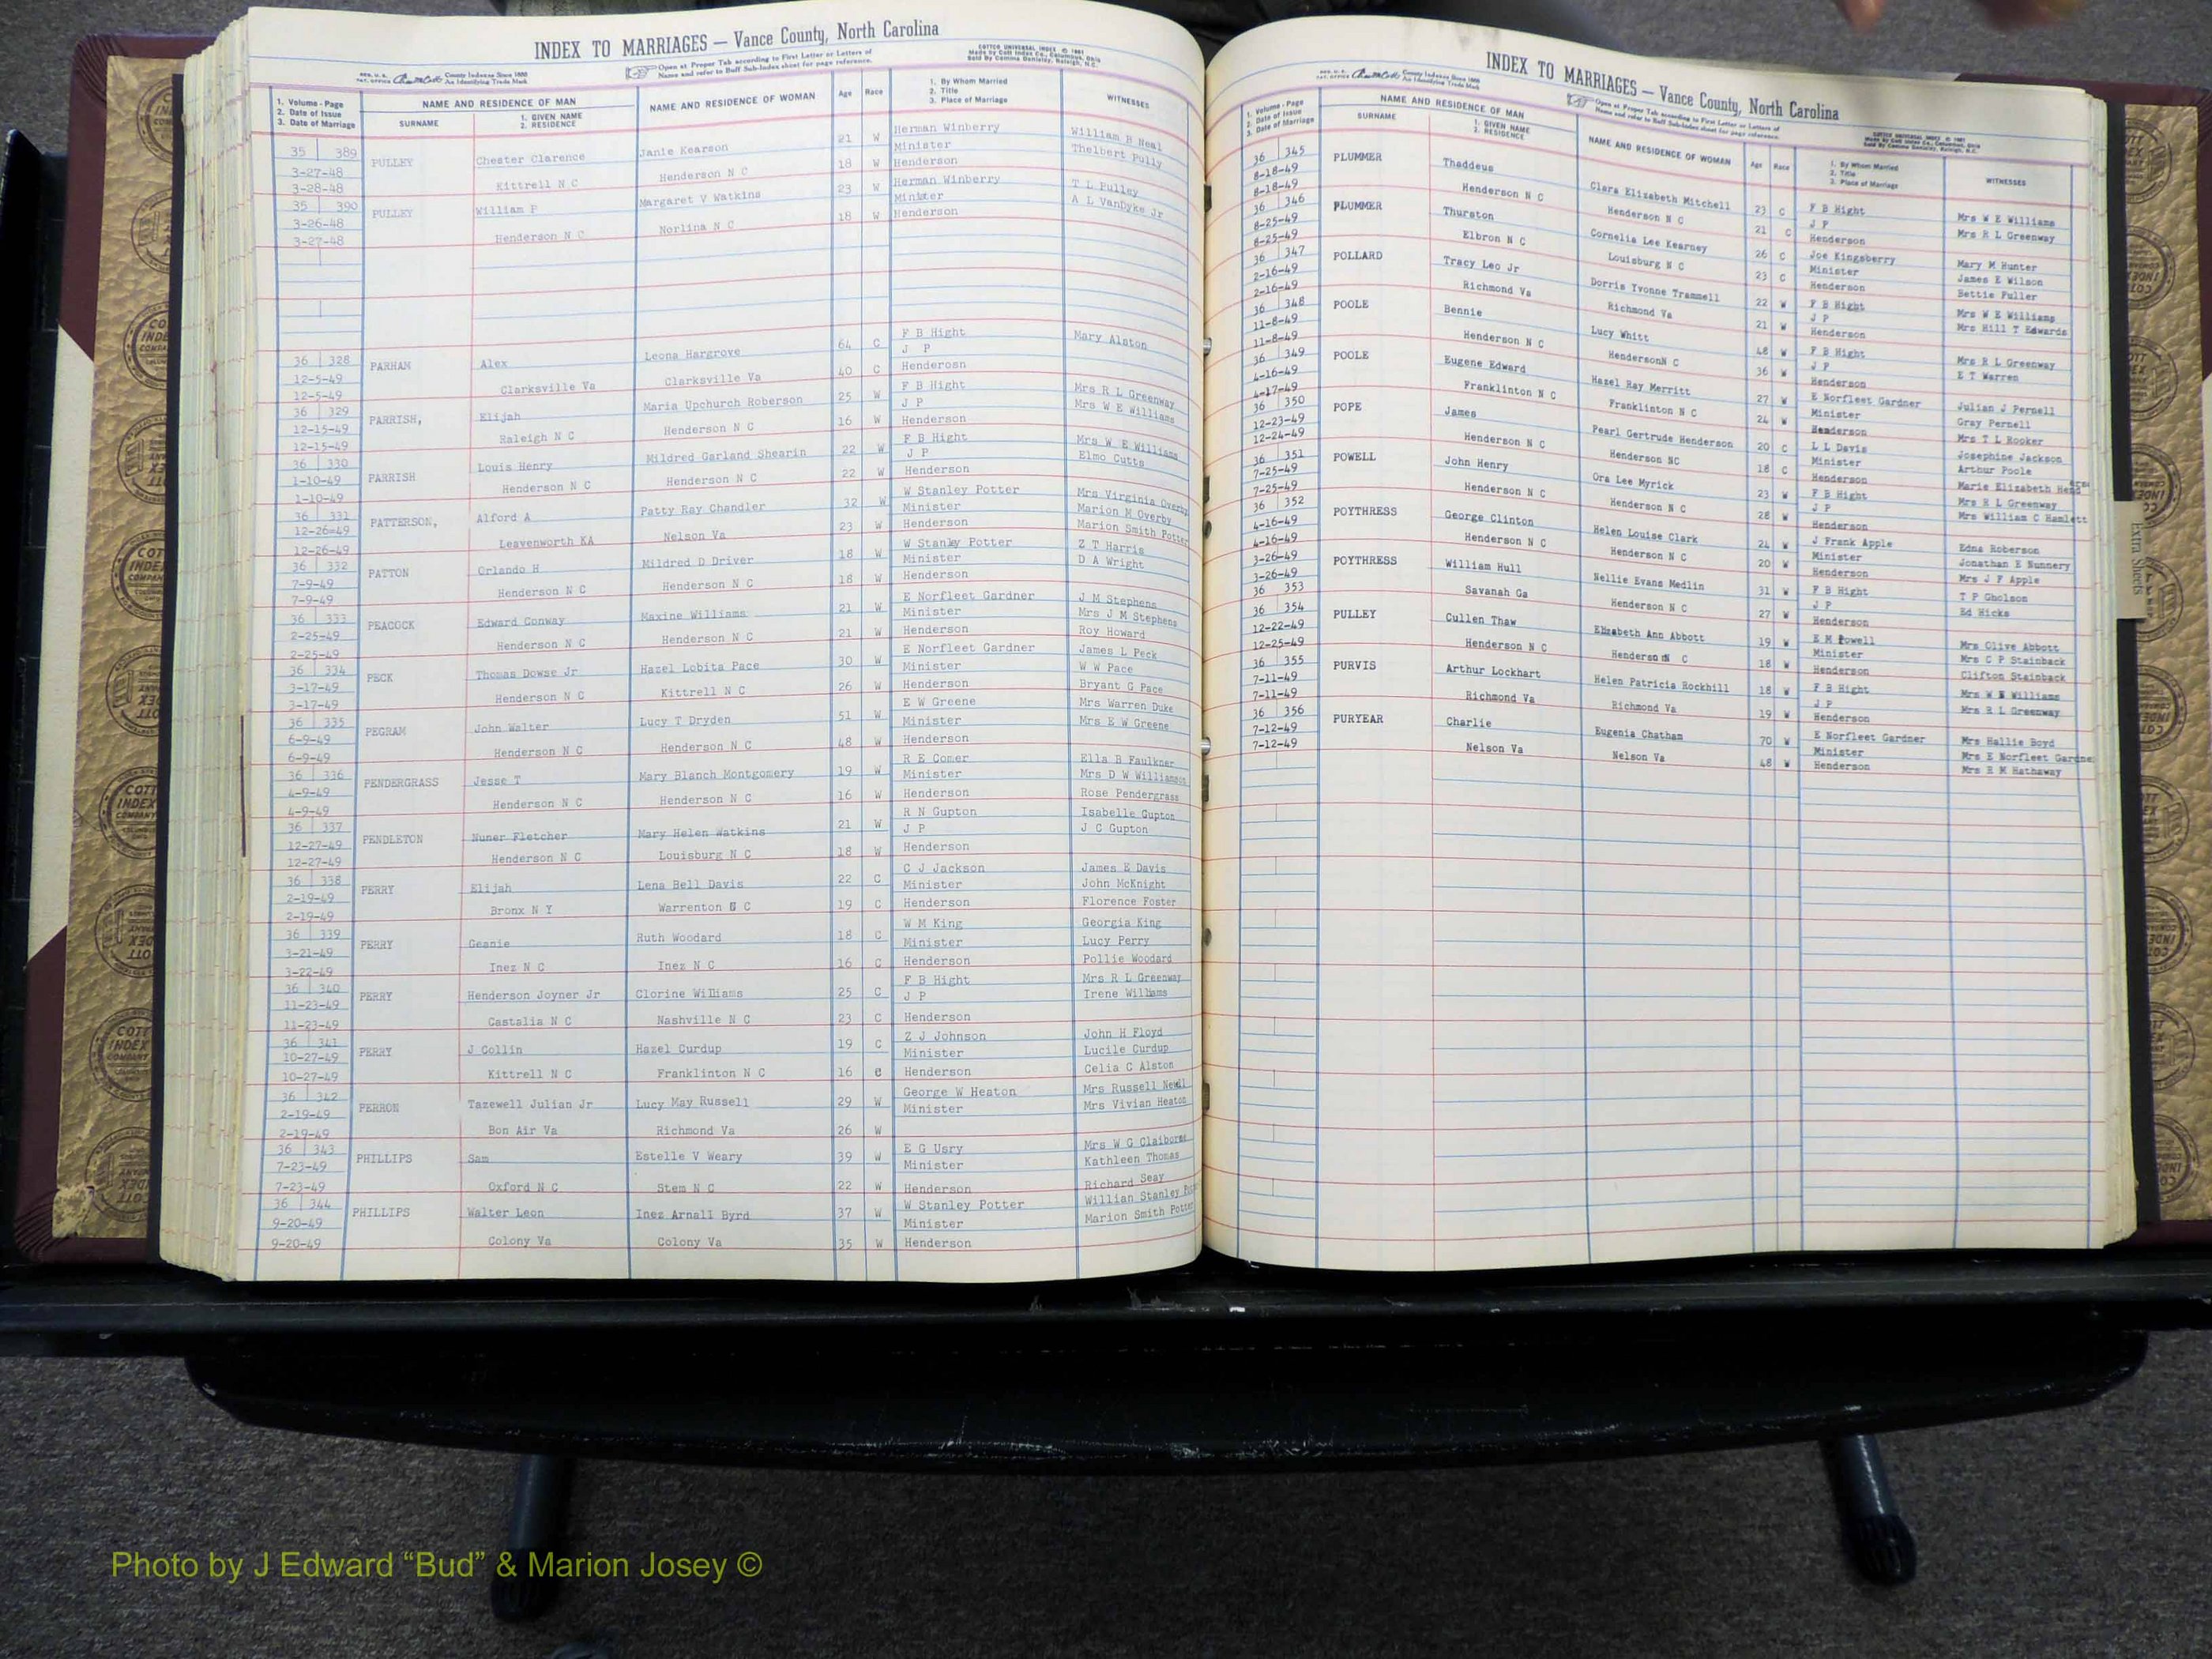 INDEX TO MARRIAGES — Vance County, North Carolina
REG. U. S. PAT. OFFICE County Indexes Since 1888 An Identifying Trade Mark
Open at Proper Tab according to First Letter or Letters of Name and refer to Buff Sub-Index sheet for page reference.
COTTCO UNIVERSAL INDEX © 1961 Made by Cott Index Co., Columbus, Ohio
1. Volume - Page 2. Date of Issue 3. Date of Marriage
NAME AND RESIDENCE OF MAN
SURNAME 1. GIVEN NAME 2. RESIDENCE
NAME AND RESIDENCE OF WOMAN
Age Race
1. By Whom Married 2. Title 3. Place of Marriage
WITNESSES
35 389 PULLEY Chester Clarence Janie Kearson 21 W Herman Winberry William H Neal
3-27-48 Kittrell N C Henderson N C 18 W Minister Thelbert Pully
3-28-48 Henderson
35 390 PULLEY William P Margaret V Watkins 23 W Herman Winberry T L Pulley
3-26-48 Henderson N C Norlina N C 18 W Minister A L VanDyke Jr
3-27-48 Henderson
36 328 PARHAM Alex Leona Hargrove 64 C F B Hight Mary Alston
12-5-49 Clarksville Va Clarksville Va 40 C J P
12-5-49 Henderosn
36 329 PARRISH, Elijah Maria Upchurch Roberson 25 W F B Hight Mrs R L Greenway
12-15-49 Raleigh N C Henderson N C 16 W J P Mrs W E Williams
12-15-49 Henderson
36 330 PARRISH Louis Henry Mildred Garland Shearin 22 W F B Hight Mrs W E Williams
1-10-49 Henderson N C Henderson N C 22 W J P Elmo Cutts
1-10-49 Henderson
36 331 PATTERSON, Alford A Patty Ray Chandler 32 W W Stanley Potter Mrs Virginia Overby
12-26-49 Leavenworth KA Nelson Va 23 W Minister Marion M Overby
12-26-49 Henderson Marion Smith Potter
36 332 PATTON Orlando H Mildred D Driver 18 W W Stanley Potter Z T Harris
7-9-49 Henderson N C Henderson N C 18 W Minister D A Wright
7-9-49 Henderson
36 333 PEACOCK Edward Conway Maxine Williams 21 W E Norfleet Gardner J M Stephens
2-25-49 Henderson N C Henderson N C 21 W Minister Mrs J M Stephens
2-25-49 Henderson Roy Howard
36 334 PECK Thomas Dowse Jr Hazel Lobita Pace 30 W E Norfleet Gardner James L Peck
3-17-49 Henderson N C Kittrell N C 26 W Minister W W Pace
3-17-49 Henderson Bryant G Pace
36 335 PEGRAM John Walter Lucy T Dryden 51 W E W Greene Mrs Warren Duke
6-9-49 Henderson N C Henderson N C 48 W Minister Mrs E W Greene
6-9-49 Henderson
36 336 PENDERGRASS Jesse T Mary Blanch Montgomery 19 W R E Comer Ella B Faulkner
4-9-49 Henderson N C Henderson N C 16 W Minister Mrs D W Williamson
4-9-49 Henderson Rose Pendergrass
36 337 PENDLETON Nuner Fletcher Mary Helen Watkins 21 W R N Gupton Isabelle Gupton
12-27-49 Henderson N C Louisburg N C 18 W J P J C Gupton
12-27-49 Henderson
36 338 PERRY Elijah Lena Bell Davis 22 C C J Jackson James E Davis
2-19-49 Bronx N Y Warrenton N C 19 C Minister John McKnight
2-19-49 Henderson Florence Foster
36 339 PERRY Geanie Ruth Woodard 18 C W M King Georgia King
3-21-49 Inez N C Inez N C 16 C Minister Lucy Perry
3-22-49 Henderson Pollie Woodard
36 340 PERRY Henderson Joyner Jr Clorine Williams 25 C F B Hight Mrs R L Greenway
11-23-49 Castalia N C Nashville N C 23 C J P Irene Williams
11-23-49 Henderson
36 341 PERRY J Collin Hazel Curdup 19 C Z J Johnson John H Floyd
10-27-49 Kittrell N C Franklinton N C 16 C Minister Lucile Curdup
10-27-49 Henderson Celia C Alston
36 342 PERRON Tazewell Julian Jr Lucy May Russell 29 W George W Heaton Mrs Russell Newll
2-19-49 Bon Air Va Richmond Va 26 W Minister Mrs Vivian Heaton
2-19-49
36 343 PHILLIPS Sam Estelle V Weary 39 W E G Usry Mrs W G Claiborne
7-23-49 Oxford N C Stem N C 22 W Minister Kathleen Thomas
7-23-49 Henderson Richard Seay
36 344 PHILLIPS Walter Leon Inez Arnall Byrd 37 W W Stanley Potter Willian Stanley
9-20-49 Colony Va Colony Va 35 W Minister Marion Smith Potter
9-20-49 Henderson
INDEX TO MARRIAGES — Vance County, North Carolina
REG. U. S. PAT. OFFICE County Indexes Since 1888 An Identifying Trade Mark
Open at Proper Tab according to First Letter or Letters of Name and refer to Buff Sub-Index sheet for page reference.
1. Volume - Page 2. Date of Issue 3. Date of Marriage
NAME AND RESIDENCE OF MAN
SURNAME 1. GIVEN NAME 2. RESIDENCE
NAME AND RESIDENCE OF WOMAN
Age Race
1. By Whom Married 2. Title 3. Place of Marriage
WITNESSES
36 345 PLUMMER Thaddeus Clara Elizabeth Mitchell 23 C F B Hight Mrs W E Williams
8-18-49 Henderson N C Henderson N C 21 C J P Mrs R L Greenway
8-18-49 Henderson
36 346 PLUMMER Thurston Cornelia Lee Kearney 26 C Joe Kingsberry Mary M Hunter
8-25-49 Elbron N C Louisburg N C 23 C Minister James E Wilson
8-25-49 Henderson Bettie Fuller
36 347 POLLARD Tracy Leo Jr Dorris Yvonne Trammell 22 W F B Hight Mrs W E Williams
2-16-49 Richmond Va Richmond Va 21 W J P Mrs Hill T Edwards
2-16-49 Henderson
36 348 POOLE Bennie Lucy Whitt 48 W F B Hight Mrs R L Greenway
11-8-49 Henderson N C HendersonN C 36 W J P E T Warren
11-8-49 Henderson
36 349 POOLE Eugene Edward Hazel Ray Merritt 27 W E Norfleet Gardner Julian J Pernell
4-16-49 Franklinton N C Franklinton N C 24 W Minister Gray Pernell
4-17-49 Henderson Mrs T L Hooker
36 350 POPE James Pearl Gertrude Henderson 20 C L L Davis Josephine Jackson
12-23-49 Henderson N C Henderson NC 18 C Minister Arthur Poole
12-24-49 Henderson Marie Elizabeth
36 351 POWELL John Henry Ora Lee Myrick 23 W F B Hight Mrs R L Greenway
7-25-49 Henderson N C Henderson N C 28 W J P Mrs William C Hamlett
7-25-49 Henderson
36 352 POYTHRESS George Clinton Helen Louise Clark 24 W J Frank Apple Edna Roberson
4-16-49 Henderson N C Henderson N C 20 W Minister Jonathan E Nunnery
4-16-49 Henderson Mrs J F Apple
3-26-49 POYTHRESS William Hull Nellie Evans Medlin 31 W F B Hight T P Gholson
3-26-49 Savanah Ga Henderson N C 27 W J P Ed Hicks
36 353 Henderson
36 354 PULLEY Cullen Thaw Elizabeth Ann Abbott 19 W E M Powell Mrs Olive Abbott
12-22-49 Henderson N C Henderson N C 18 W Minister Mrs C P Stainback
12-25-49 Henderson Clifton Stainback
36 355 PURVIS Arthur Lockhart Helen Patricia Rockhill 18 W F B Hight Mrs W E Williams
7-11-49 Richmond Va Richmond Va 19 W J P Mrs R L Greenway
7-11-49 Henderson
36 356 PURYEAR Charlie Eugenia Chatham 70 W E Norfleet Gardner Mrs Hallie Boyd
7-12-49 Nelson Va Nelson Va 48 W Minister Mrs E Norfleet Gardne
7-12-49 Henderson Mrs R M Hathaway
Extra Sheets
COTT INDEX COMPANY
Photo by J Edward “Bud” & Marion Josey ©